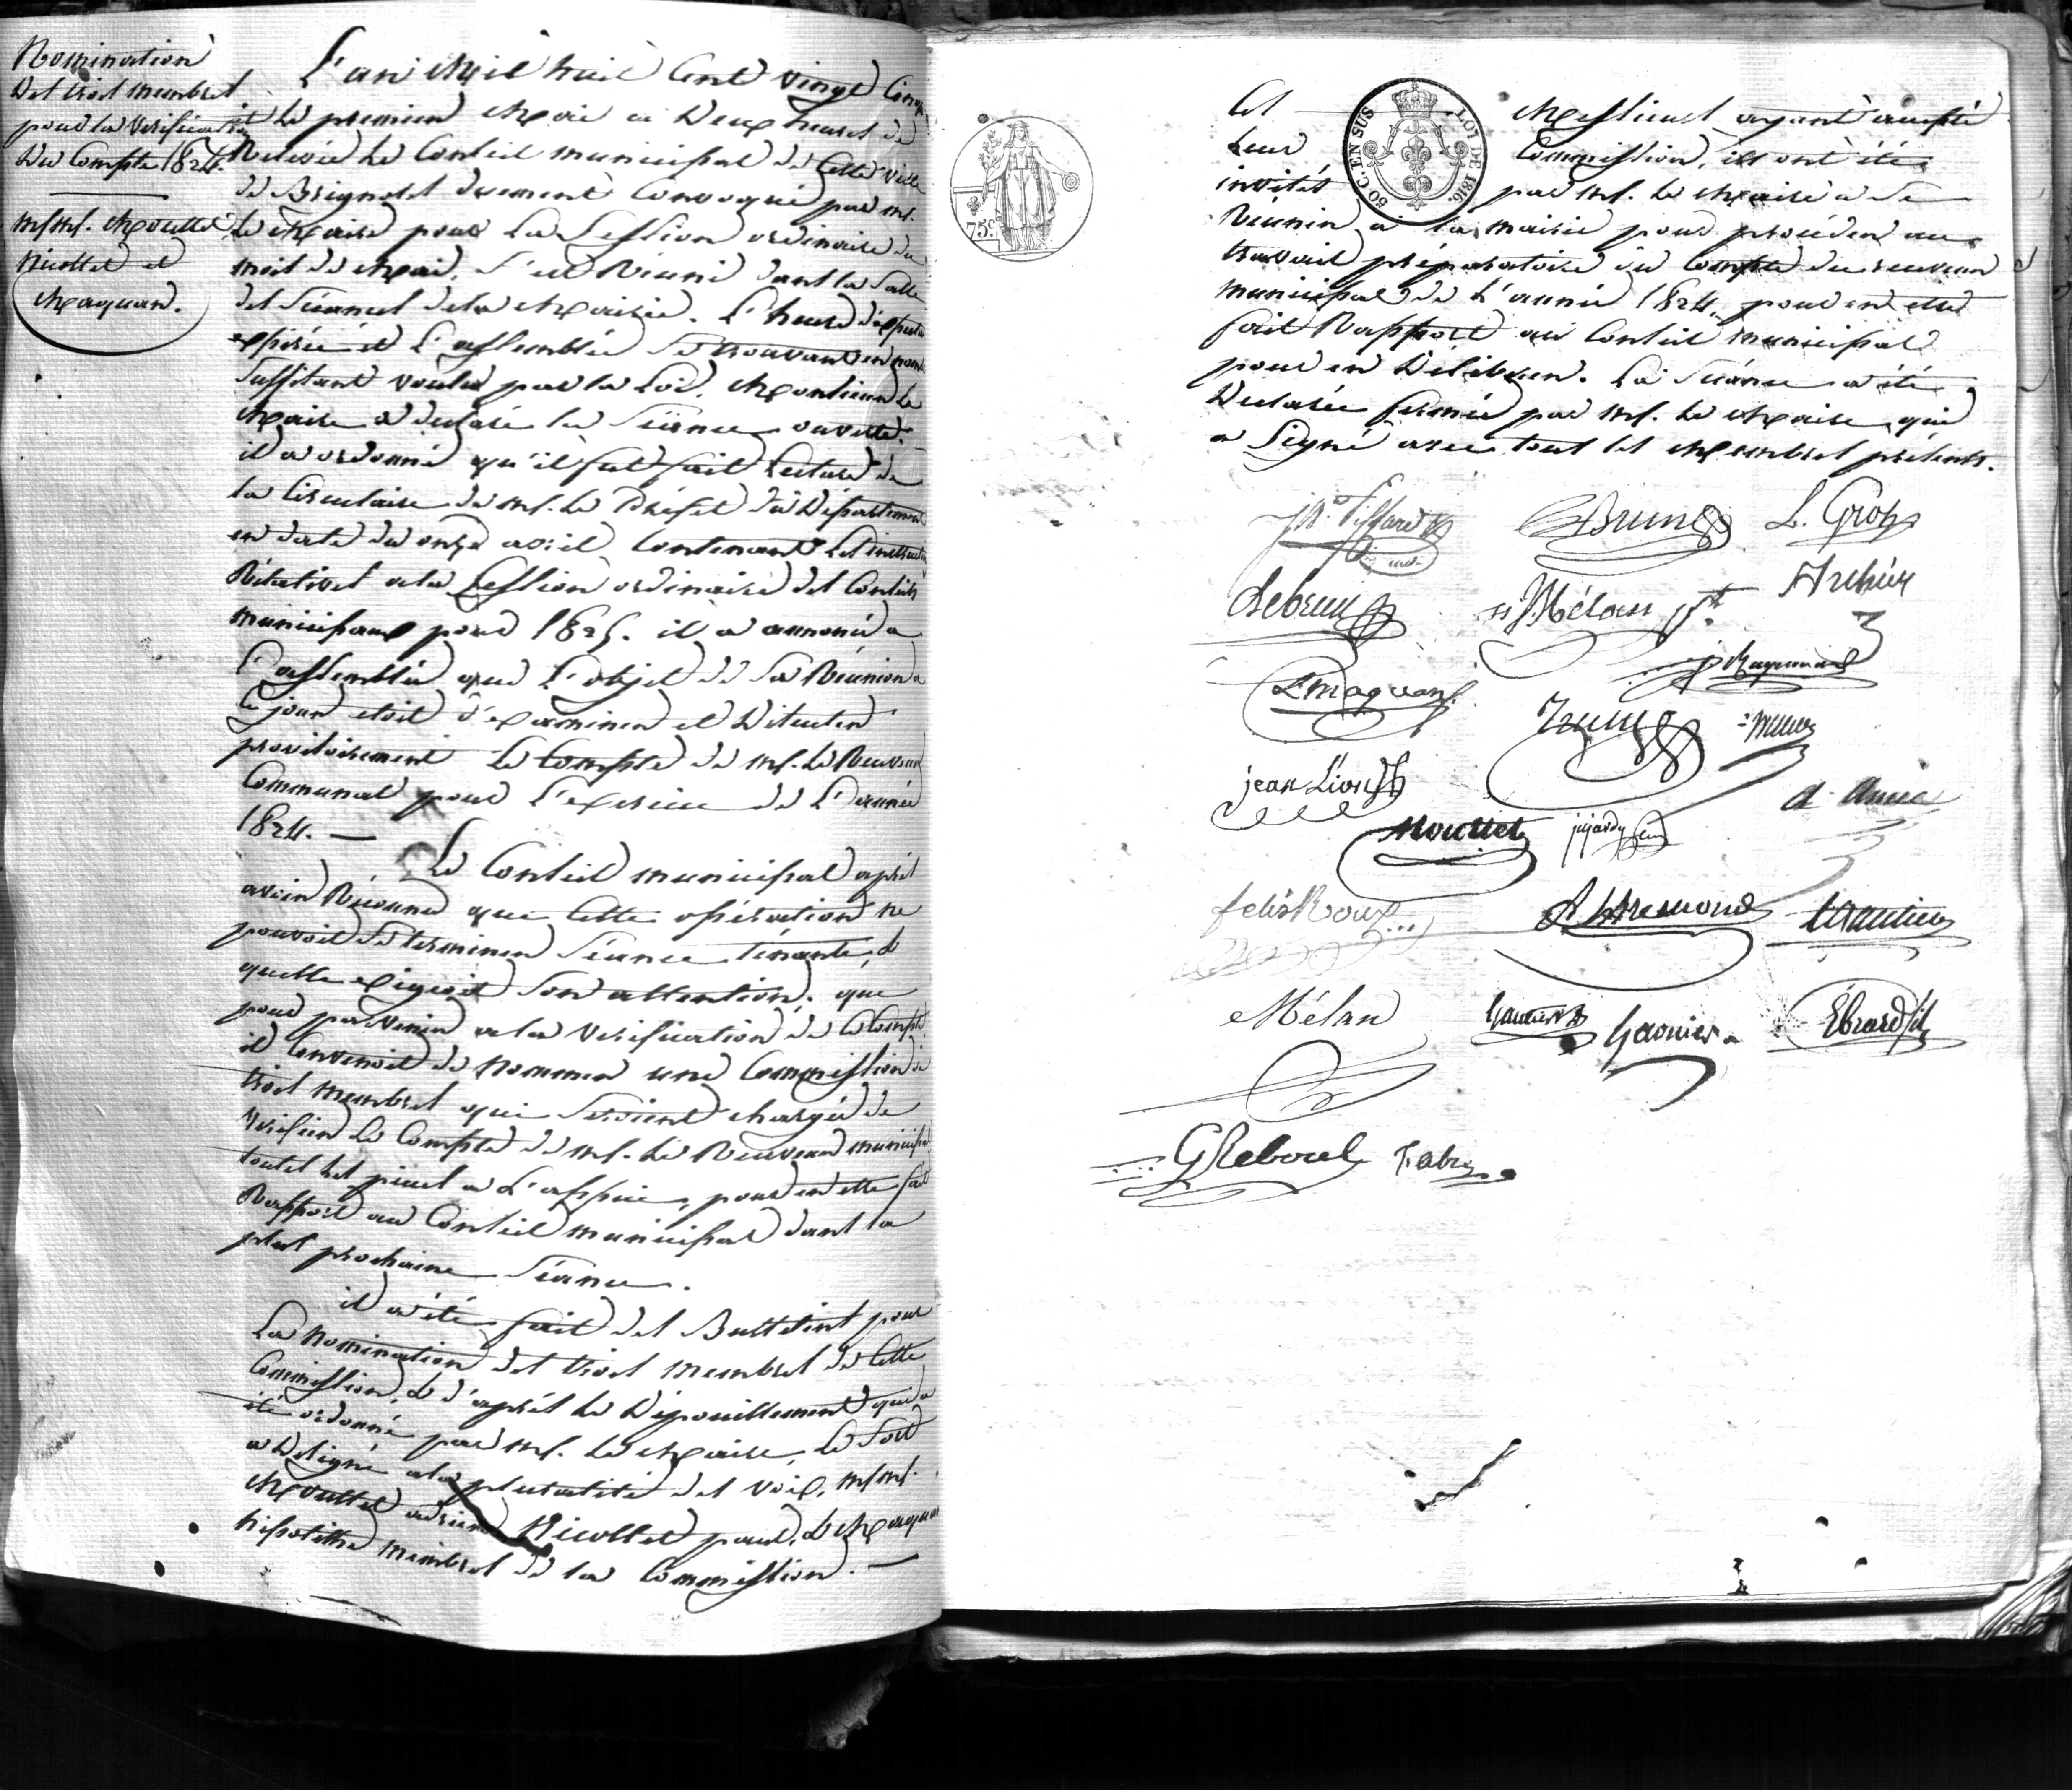 Nomination
Des trois membres
pour la Verification
Du Compte 1824.
MM. Mouttet
Nicollet et
Maquan.
L'an Mil huit Cent vingt Cinq
et le premier Mai à Deux heures de
Relevée Le Conseil municipal de Cette ville
de Brignoles dument Convoqué par M.
Le Maire pour La Session ordinaire du
mois de Mai, s'est Réuni dans la Salle
des Séances de la Mairie. L'heure d'
expirée et l'assemblée se trouvant en nombre
suffisant voulu par la Loi, Monsieur Le
Maire a déclaré la Séance ouverte.
il a ordonné qu'il fut fait Lecture de
la Circulaire de M. Le Préfet du Département
en date du onze avril Contenant Les instructions
Rélatives a la Session ordinaire des Conseils
municipaux pour 1825. il a annoncé a
L'assemblée que L'objet de Sa Réunion a
Ce jour etoit d'Examiner et Discuter
provisoirement Le Compte de M. Le Receveur
Communal pour L'Exercice de L'année
1824. —
Le Conseil municipal après
avoir Réconnu que Cette opération ne
pouvoit se terminer Séance tenante, &
quelle Exigeoit Son attention; que
pour parvenir a la Verification de Ce Compte
il Convenoit de Nommer une Commission de
trois membres qui Seroient chargés de
Verifier Le Compte de M. Le Receveur municipal
toutes les pieces a L'appui, pour en etre fait
Rapport au Conseil municipal dans la
plus prochaine Séance.
il a été fait des Bulletins pour
La Nomination des trois membres de Cette
Commission, & d'après Le Dépouillement qui a
été ordonné par M. Le Maire, Le Sort
a Désigné a la pluralité des voix, MM.
Mouttet adrien Nicollet paul, & Maquan
hipolitte membres de la Commission. —
75c
50 C. EN SUS LOI DE 1816.
Ces Messieurs ayant accepté
Leur Commission, ils ont été
invités par M. Le Maire a Se
Réunir a la mairie pour procéder au
travail préparatoire du Compte du receveur
municipal de L'année 1824, pour en etre
fait Rapport au Conseil municipal
pour en Déliberer. La Séance a été
Déclarée fermée par M. Le Maire qui
a Signé avec tous les Membres présents.
Brun L. Gros
Lebrun Archier
Maquan Raynaud
jean Lion
Mouttet
felix Roux Gautier
Mélan Garnier Ebrard
G Reboul Fabre